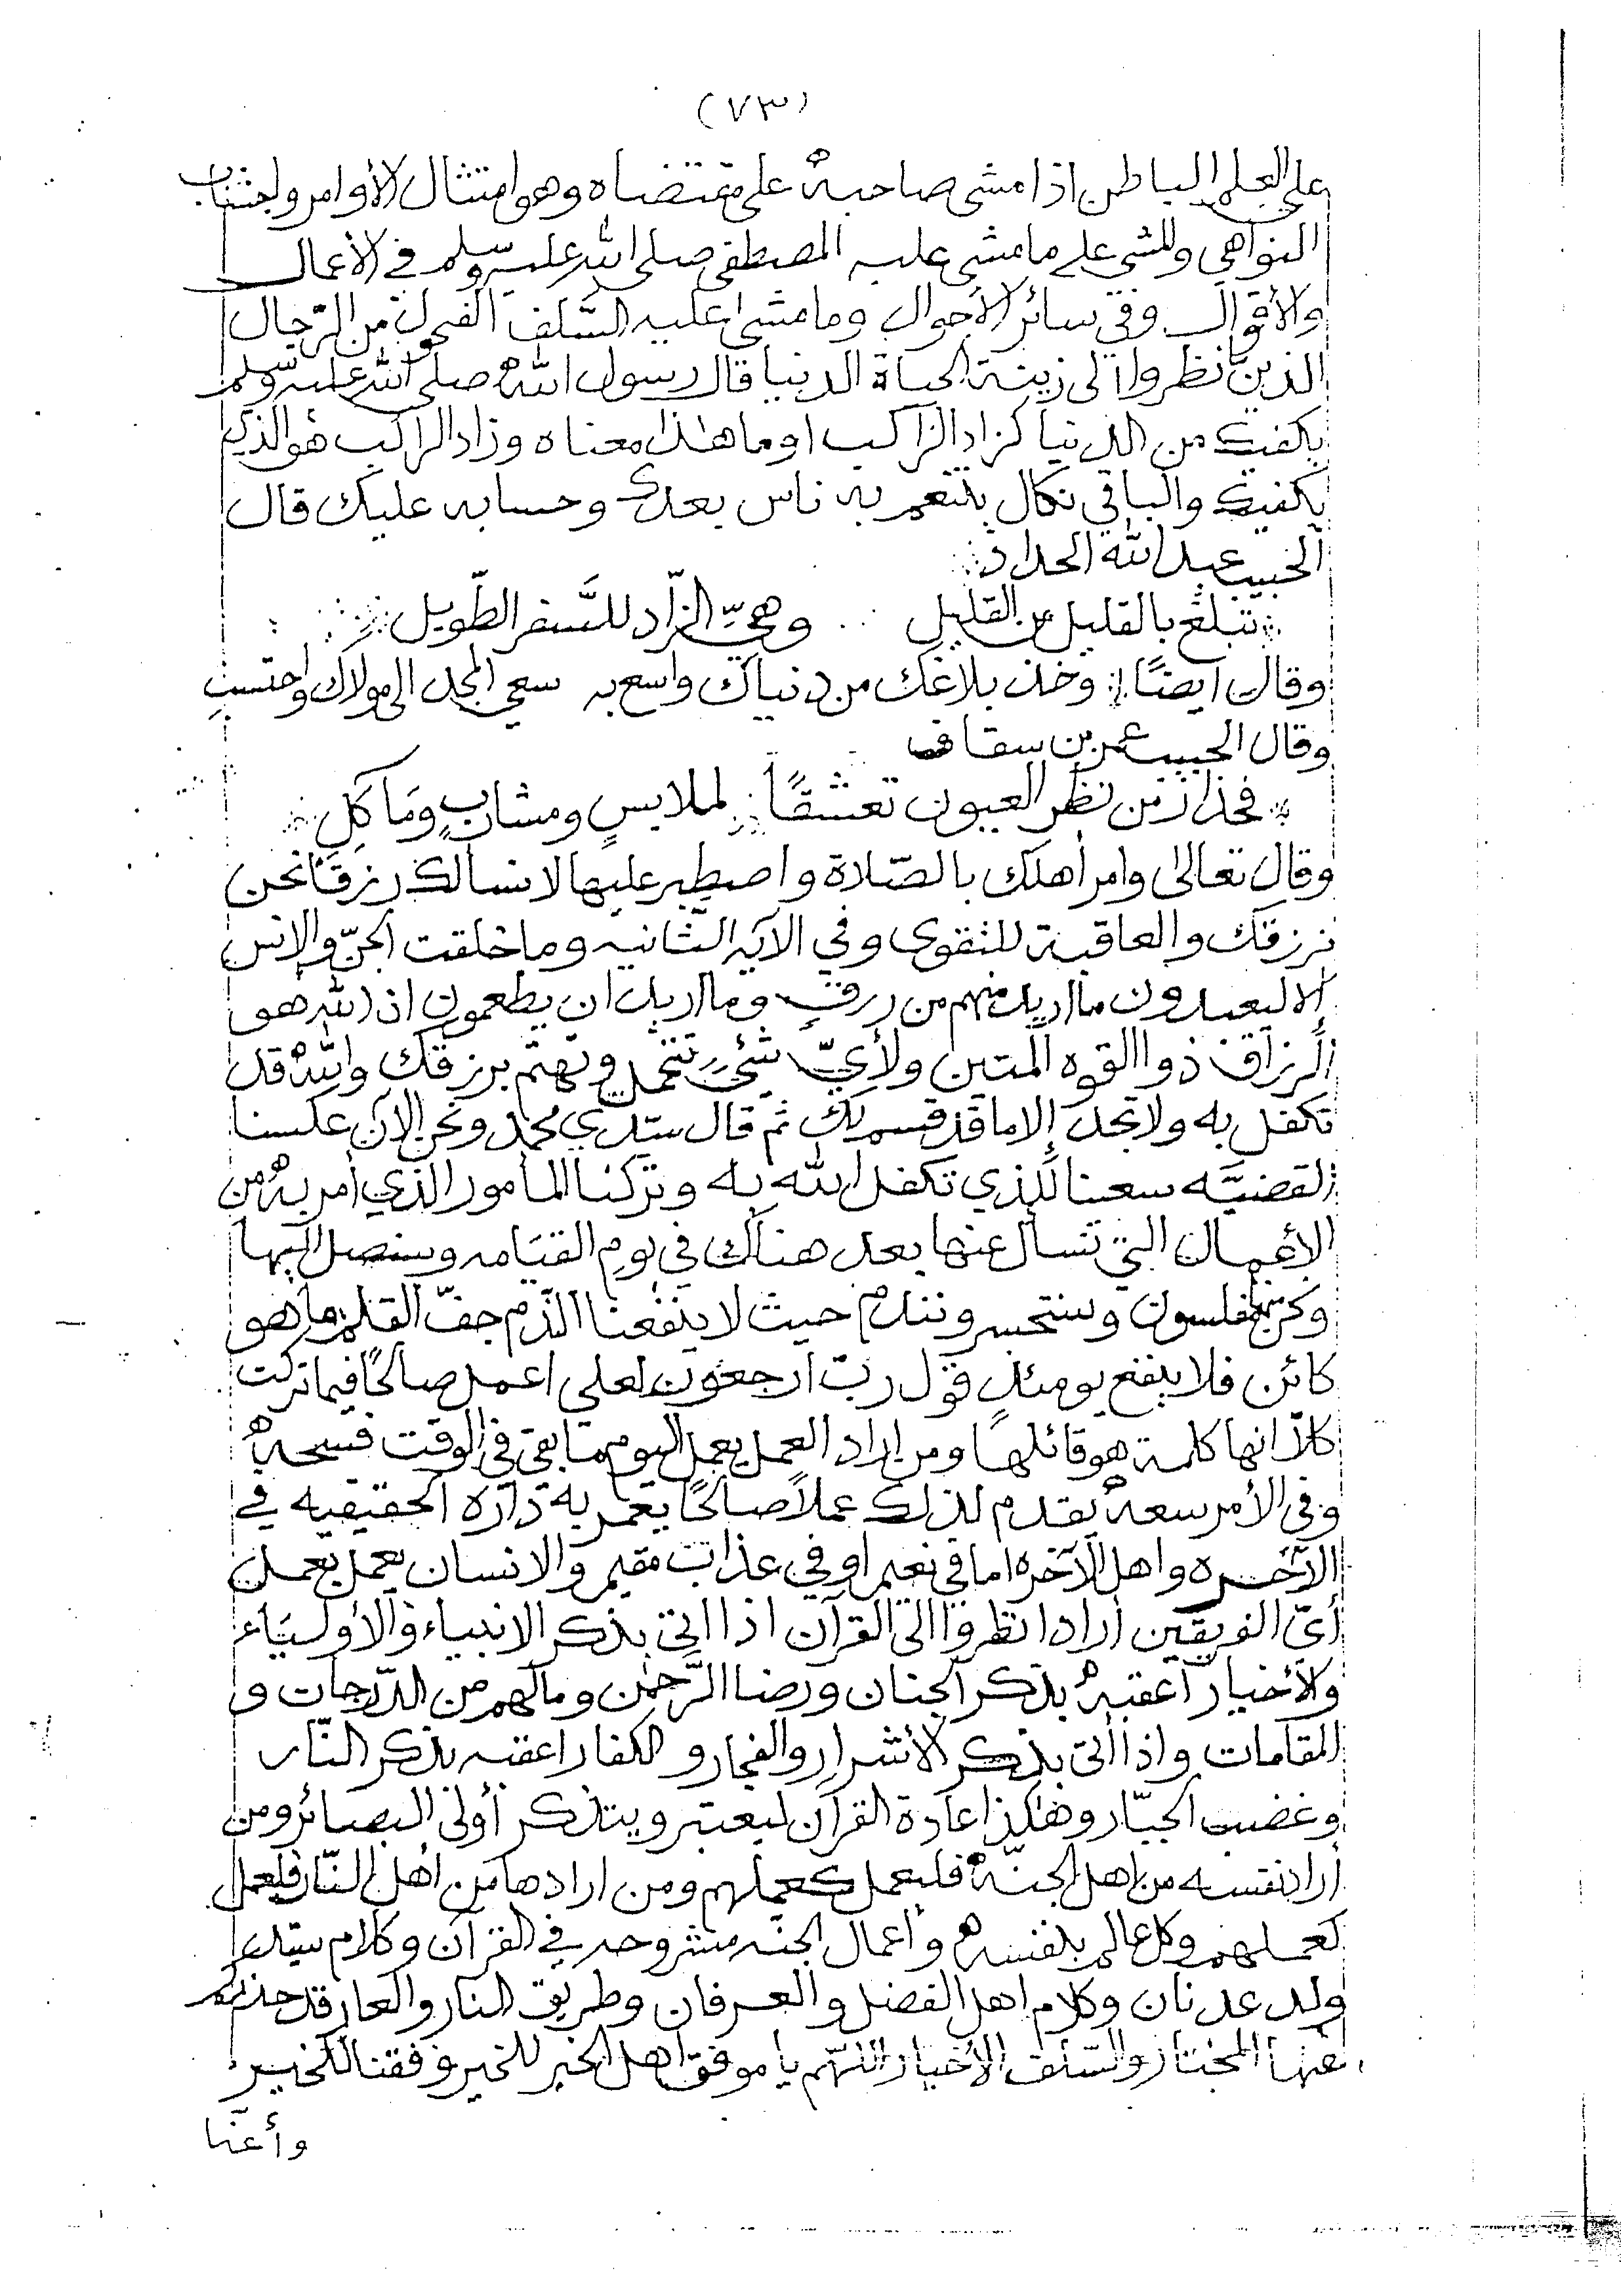 (٧٣)
على العلم الباطن اذا مشى صاحبهُ على مقتضاه وهو امتثال الأوامر واجتناب
النواهي والمشي على ما مشى عليه المصطفى صلى الله عليه وسلم في الأعمال
والأقوال وفي سائر الأحوال وما مشى عليه السَّلف الفحول من الرِّجال
الذين نظروا الى زينة الحياة الدنيا قال رسول اللهُ صلى الله عليه وسلم
يكفيك من الدنيا كزاد الراكب او ما هذا معناه وزاد الراكب هو الذي
يكفيك والباقي نكال يتنعم به ناس بعدك وحسابه عليك قال
الحبيب عبد الله الحداد
تبلغ بالقليل من القليل وهيِّ الزّاد للسَّفر الطّويل
وقال ايضًا وخذ بلاغك من دنياك واسع به سعي المجد الى مولاك واحتسبِ
وقال الحبيب عمر بن سقاف
فحذار من نظر العيون تعشقًا لملابسٍ ومشاربٍ ومَا كَلِ
وقال تعالى وامر اهلك بالصّلاة واصطبر عليها لا نسالك رزقًا نحن
نرزقك والعاقبة للتقوى وفي الآيه الثّانيه وما خلقت الجنّ والإنس
إلا ليعبدون ما اريد منهم من رزقٍ وما اريد ان يطعمون ان الله هو
الرزاق ذو االقوه المتين ولأيّ شيٍّ تتحمل وتهتم برزقك واللهُ قد
تكفل به ولا تجد إلا ما قد قسم لك ثم قال سيّدي محمد ونحن الآن عكسنا
القضيَّه سعينا للذي تكفل الله به وتركنا المأمور الذي أمر بهُ من
الأعمال التي تسأل عنها بعد هناك في يوم القيَامه وسنصل اليها
مفلسون وسنتحسر ونندم حيث لا ينفعنا النَّدم جفّ القلم بما هو
كائن فلا ينفع يومئذٍ قول ربّ ارجعون لعلي اعمل صالحًا فيما تركت
كلاّ انها كلمة هو قائلها ومن اراد العمل يعمل اليوم ما بقي في الوقت فسحهُ
وفي الأمر سعهُ يقدم لذلك عملاً صالحًا يعمر به داره الحقيقيه في
الآخره واهل الآخره اما في نعيم او في عذاب مقيم والانسان يعمل بعمل
أيّ الفريقين أراد انظروا الى القرآن اذا اتى بذكر الانبياء والأوليَاء
ولأخيار أعقبهُ بذكر الجنان ورضا الرَّحمٰن وما لهم من الدّرجات و
المقامات واذا أتى بذكر الأشرار والفجار والكفار اعقبه بذكر النّار
وغضب الجبّار وهٰكذا عادة القرآن ليعتبر ويتذكر أولى البصائر ومن
أراد نفسه من اهل الجنّهُ فليعمل كعملهم ومن ارادها من اهل النّار فليعمل
كعملهم وكل عالم بنفسهُ وأعمال الجنّه مشروحه في القرآن وكلام سيّد
ولد عدنان وكلام اهل الفضل والعرفان وطريق النار والعار قد حذركم
عنها المختار والسّلف الأخيار اللّهم يا موفق اهل الخير للخير وفقنا للخير
وأعنَّا